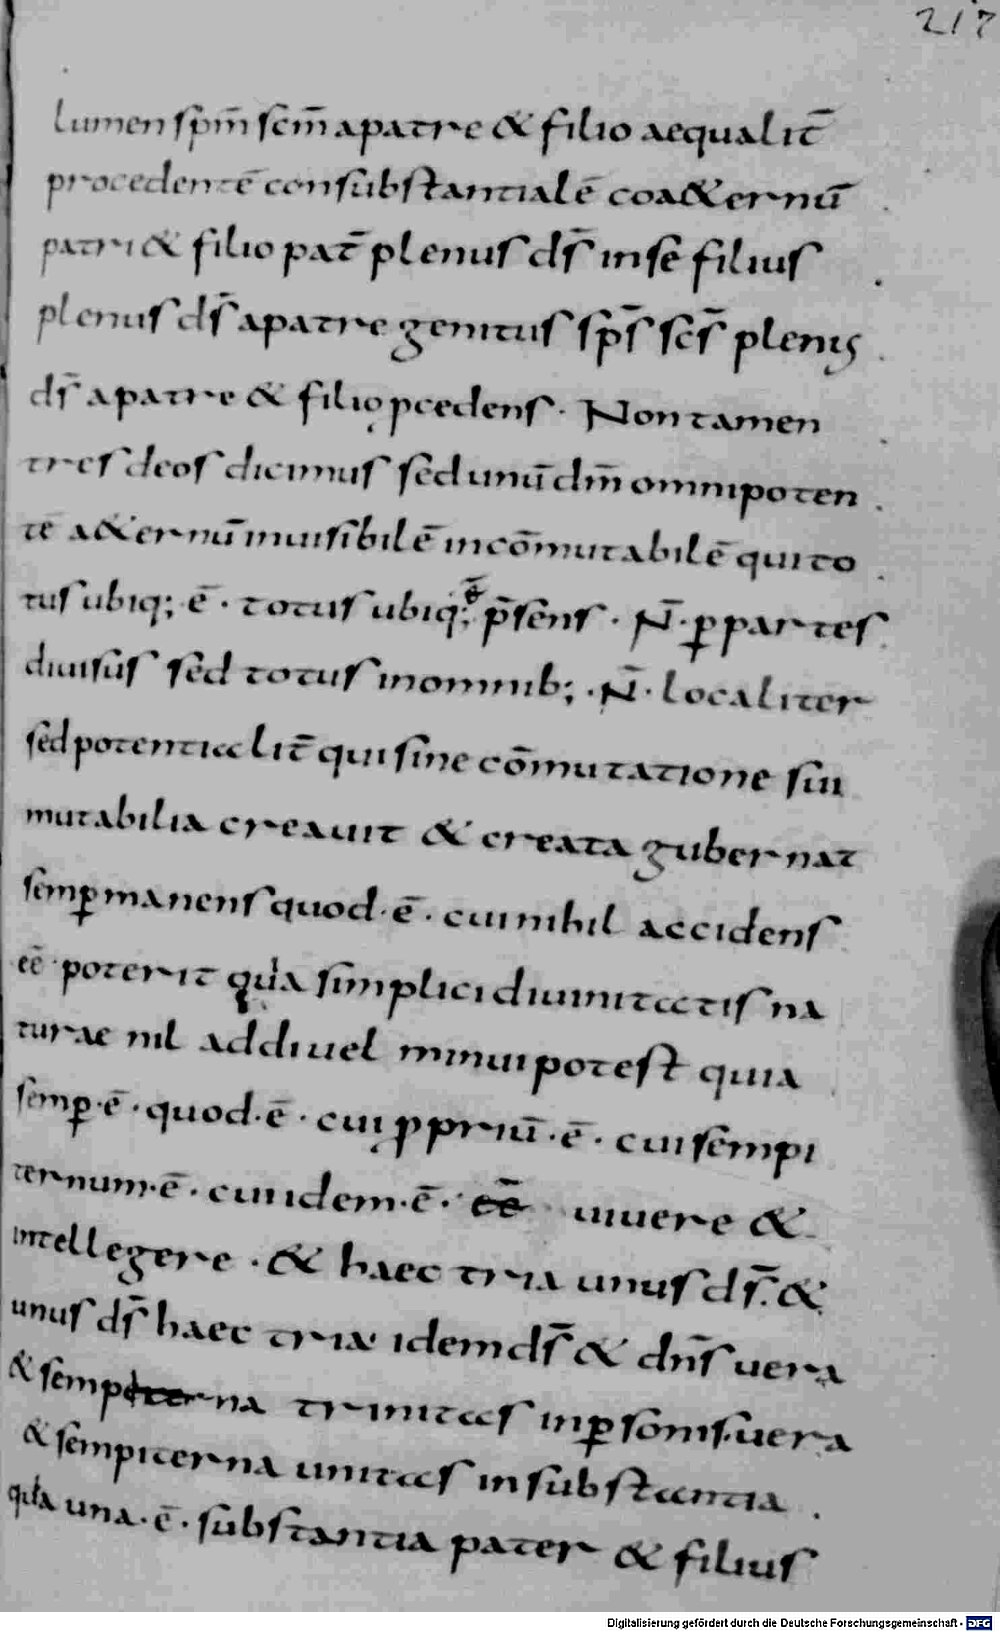 217
lumen sp̄m sc̄m a patre & filio aequalit̄
procedentē consubstantialē coa&ernū
patri & filio pat̄ plenus ds̄ in se filius
plenus ds̄ a patre genitus sp̄s sc̄s plenus
ds̄ a patre & filio ꝓcedens · Non tamen
tres deos dicimus sed unū dm̄ omnipoten
tē a&ernū inuisibilē incōmutabilē qui to
tus ubiq; ē · totus ubiq; ē p̄sens · N̄ · ꝑ partes
diuisus sed totus in omnib; · N̄ · localiter
sed potentialit̄ qui sine cōmutatione sui
mutabilia creauit & creata gubernat
semꝑ manens quod · ē · cui nihil accidens
eē poterit quia simplici diuinitatis na
turae nil addi uel minui potest quia
semꝑ · ē · quod · ē · cui ꝓpriū · ē · cui sempi
ternum · ē · cui idem · ē · eē uiuere &
intellegere · & haec tria unus ds̄ · &
unus ds̄ haec tria idem ds̄ & dn̄s uera
& sempiterna trinitas in ꝑsonis · uera
& sempiterna unitas in substantia
quia una · ē · substantia pater & filius
Digitalisierung gefördert durch die Deutsche Forschungsgemeinschaft - DFG